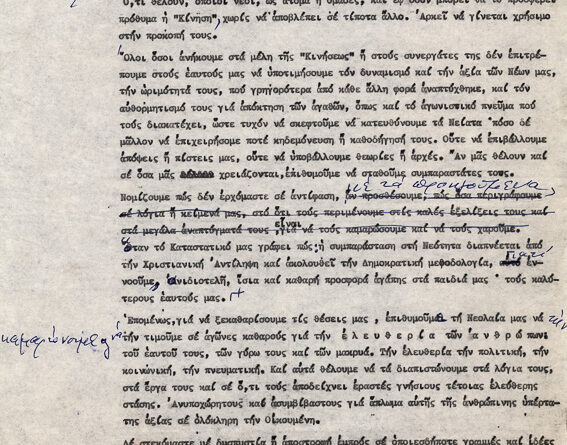 Ὅ,τι θέλουν, ὅποιοι νέοι, ὡς ἄτομα ἤ ὁμάδες, καί ἐφ᾽ ὅσον μπορεῖ νά τό προσφέρει
πρόθυμα ἡ "Κίνηση", χωρίς νά ἀποβλέπει σέ τίποτα ἄλλο. Ἀρκεῖ νά γίνεται χρήσιμο
στήν προκοπή τους.
Ὅλοι ὅσοι ἀνήκουμε στά μέλη τῆς "Κινήσεως" ἤ στούς συνεργάτες της δέν ἐπιτρέ-
πουμε στούς ἑαυτούς μας νά ὑποτιμήσουμε τόν δυναμισμό καί τήν ἀξία τῶν Νέων μας,
τήν ὡριμότητά τους, πού γρηγορότερα ἀπό κάθε ἄλλη φορά ἀναπτύχθηκε, καί τόν
αὐθορμητισμό τους γιά ἀπόκτηση τῶν ἀγαθῶν, ὅπως καί τό ἀγωνιστικό πνεῦμα πού
τούς διακατέχει, ὥστε τυχόν νά σκεφτοῦμε νά κατευθύνουμε τά Νειάτα πόσο δέ
μᾶλλον νά ἐπιχειρήσομε ποτέ κηδεμόνευση ἤ καθοδήγησή τους. Οὔτε νά ἐπιβάλλουμε
ἀπόψεις ἤ πίστεις μας, οὔτε νά ὑποβάλλουμε θεωρίες ἤ ἀρχές. Ἄν μᾶς θέλουν καί
σέ ὅσα μᾶς χρειάζονται, ἐπιθυμοῦμε νά σταθοῦμε συμπαραστάτες τους.
μέ τά προηγούμενα
Νομίζουμε πώς δέν ἐρχόμαστε σέ ἀντίφαση, ἄν προσθέσουμε, πώς ὅσα περιγράφουμε
σέ λόγια ἤ κείμενά μας, στό ὅτι τούς περιμένουμε στίς καλές ἐξελίξεις τους καί
στά μεγάλα ἀναπτύγματά τους, εἶναι γιά νά τούς καμαρώσουμε καί νά τούς χαροῦμε.
Ὅταν τό Καταστατικό μας γράφει πώς: ἡ συμπαράσταση στή Νεότητα διαπνέεται ἀπό
τήν Χριστιανική Ἀντίληψη καί ἀκολουθεῖ τήν Δημοκρατική μεθοδολογία, αὐτό ἐν-
νοοῦμε, Ἀνιδιοτελῆ, ἴσια καί καθαρή προσφορά ἀγάπης στά παιδιά μας ᾽ τούς καλύ-
τερους ἑαυτούς μας.
Ἑπομένως, γιά νά ξεκαθαρίσουμε τίς θέσεις μας, ἐπιθυμοῦμε τή Νεολαία μας νά τήν
καμαρώνουμε νά
τήν τιμοῦμε σέ ἀγῶνες καθαρούς γιά τήν ἐλευθερία τῶν ἀνθρώπων:
τοῦ ἑαυτοῦ τους, τῶν γύρω τους καί τῶν μακρυά. Τήν ἐλευθερία τήν πολιτική, τήν
κοινωνική, τήν πνευματική. Καί αὐτά θέλουμε νά τά διαπιστώνουμε στά λόγια τους,
στά ἔργα τους καί σέ ὅ,τι τούς ἀποδείχνει ἐραστές γνήσιους τέτοιας ἐλεύθερης
στάσης. Ἀνυποχώρητους καί ἀσυμβίβαστους γιά ἅπλωμα αὐτῆς τῆς ἀνθρώπινης ὑπέρτα-
της ἀξίας σέ ὁλόκληρη τήν Οἰκουμένη.
Δέ στεκόμαστε μέ δυσπιστία ἤ ἀποστροφή ἐμπρός σέ ὁποιεσδήποτε γραμμές καί ἰδέες